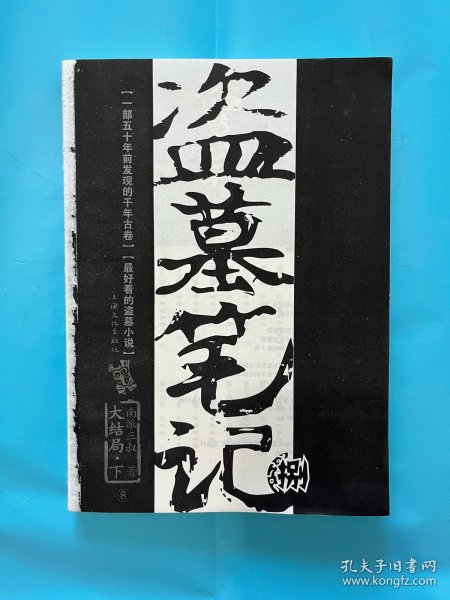 盗墓笔记
捌
【一部五十年前发现的千年古卷】【最好看的盗墓小说】
上海文化出版社
南派三叔 著
大结局·下
⑧
孔夫子旧书网
www.kongfz.com